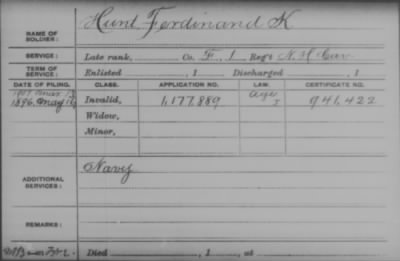 NAME OF SOLDIER: Hunt Ferdinand K
SERVICE: Late rank, Co. F, 1 Reg't N. H. Cav
TERM OF SERVICE: Enlisted , 1 Discharged , 1
DATE OF FILING. CLASS. APPLICATION NO. LAW. CERTIFICATE NO.
1896, May Invalid, 1,177,889 941,422
Widow,
Minor,
ADDITIONAL SERVICES: Navy
REMARKS:
Died , 1 , at